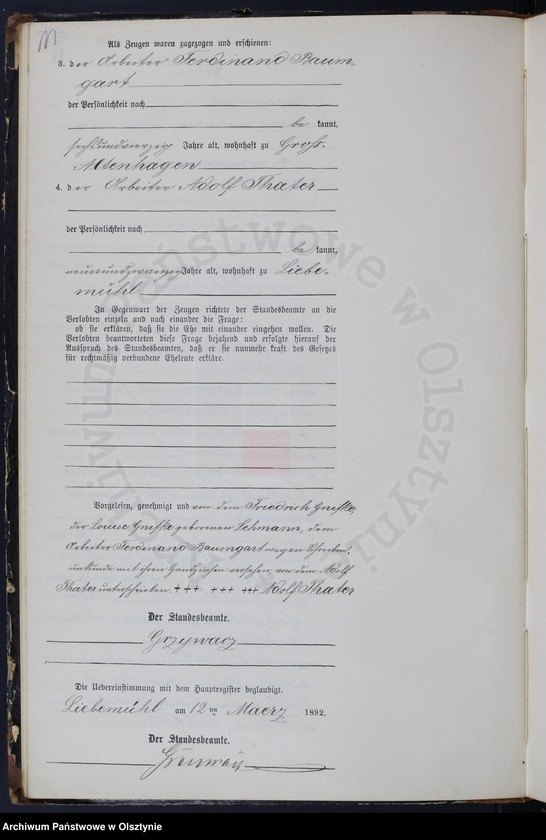 Als Zeugen waren zugezogen und erschienen:
3. der Arbeiter Ferdinand Baum-
gart
der Persönlichkeit nach
be kannt,
sechsundvierzig Jahre alt, wohnhaft zu Groß-
Altenhagen
4. der Arbeiter Adolf Thater
der Persönlichkeit nach
be kannt,
neunundzwanzig Jahre alt, wohnhaft zu Liebe-
mühl
In Gegenwart der Zeugen richtete der Standesbeamte an die
Verlobten einzeln und nach einander die Frage:
ob sie erklären, daß sie die Ehe mit einander eingehen wollen. Die
Verlobten beantworteten diese Frage bejahend und erfolgte hierauf der
Ausspruch des Standesbeamten, daß er sie nunmehr kraft des Gesetzes
für rechtmäßig verbundene Eheleute erkläre.
Vorgelesen, genehmigt und von dem Friedrich Gniffke,
der Louise Gniffke geborenen Lehmann, dem
Arbeiter Ferdinand Baumgart wegen Schreibens-
unkunde mit ihren Handzeichen versehen, von dem Adolf
Thater unterschrieben. +++ +++ +++ Adolf Thater
Der Standesbeamte.
Grzywacz
Die Uebereinstimmung mit dem Hauptregister beglaubigt.
Liebemühl am 12ten Maerz 1892.
Der Standesbeamte.
Archiwum Państwowe w Olsztynie
Archiwum Państwowe w Olsztynie